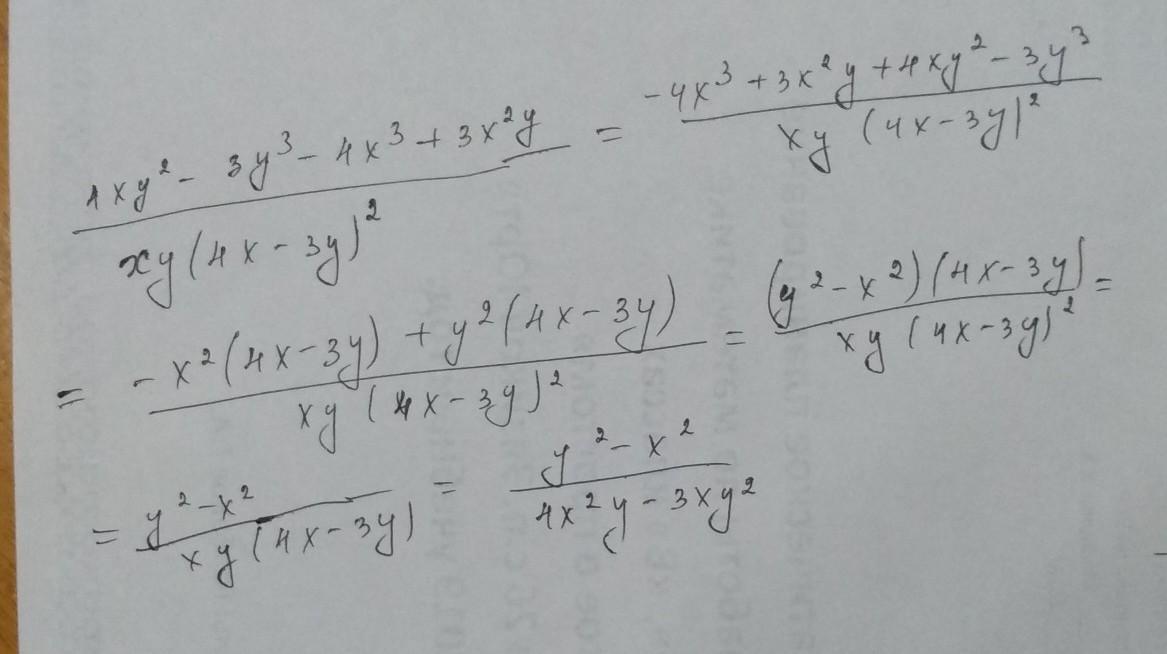 (4xy² - 3y³ - 4x³ + 3x²y) / (xy(4x - 3y)²) = (-4x³ + 3x²y + 4xy² - 3y³) / (xy (4x - 3y)²)
= (-x²(4x - 3y) + y²(4x - 3y)) / (xy (4x - 3y)²) = ((y² - x²)(4x - 3y)) / (xy (4x - 3y)²) =
= (y² - x²) / (xy(4x - 3y)) = (y² - x²) / (4x²y - 3xy²)